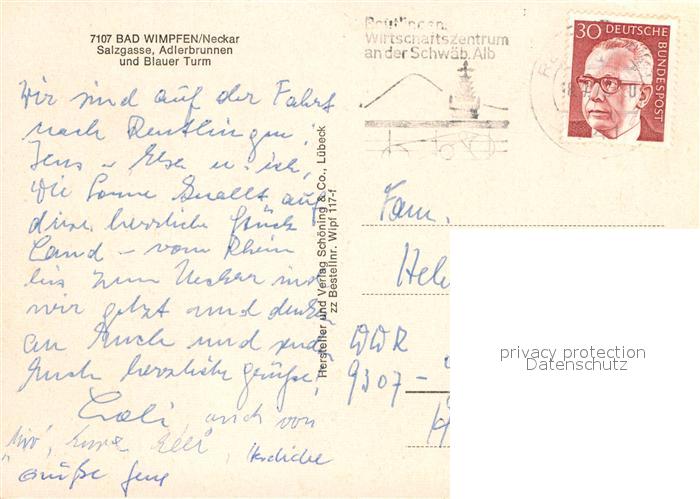 7107 BAD WIMPFEN/Neckar
Salzgasse, Adlerbrunnen
und Blauer Turm
Reutlingen
Wirtschaftszentrum
an der Schwäb. Alb
30 DEUTSCHE
BUNDESPOST
Wir sind auf der Fahrt
nach Reutlingen,
Jens u. Elsa u. ich,
die Sonne knallt auf
diese herrliche Stück
Land – vom Rhein
bis zum Neckar sind
wir jetzt und denken
an Euch und
Euch herzliche Grüße,
auch von
Herzliche
Grüße Jens
Hersteller und Verlag Schöning & Co., Lübeck
zz Bestellnr. Wipf 117-f
Fam.
Hel
9307 –
privacy protection
Datenschutz